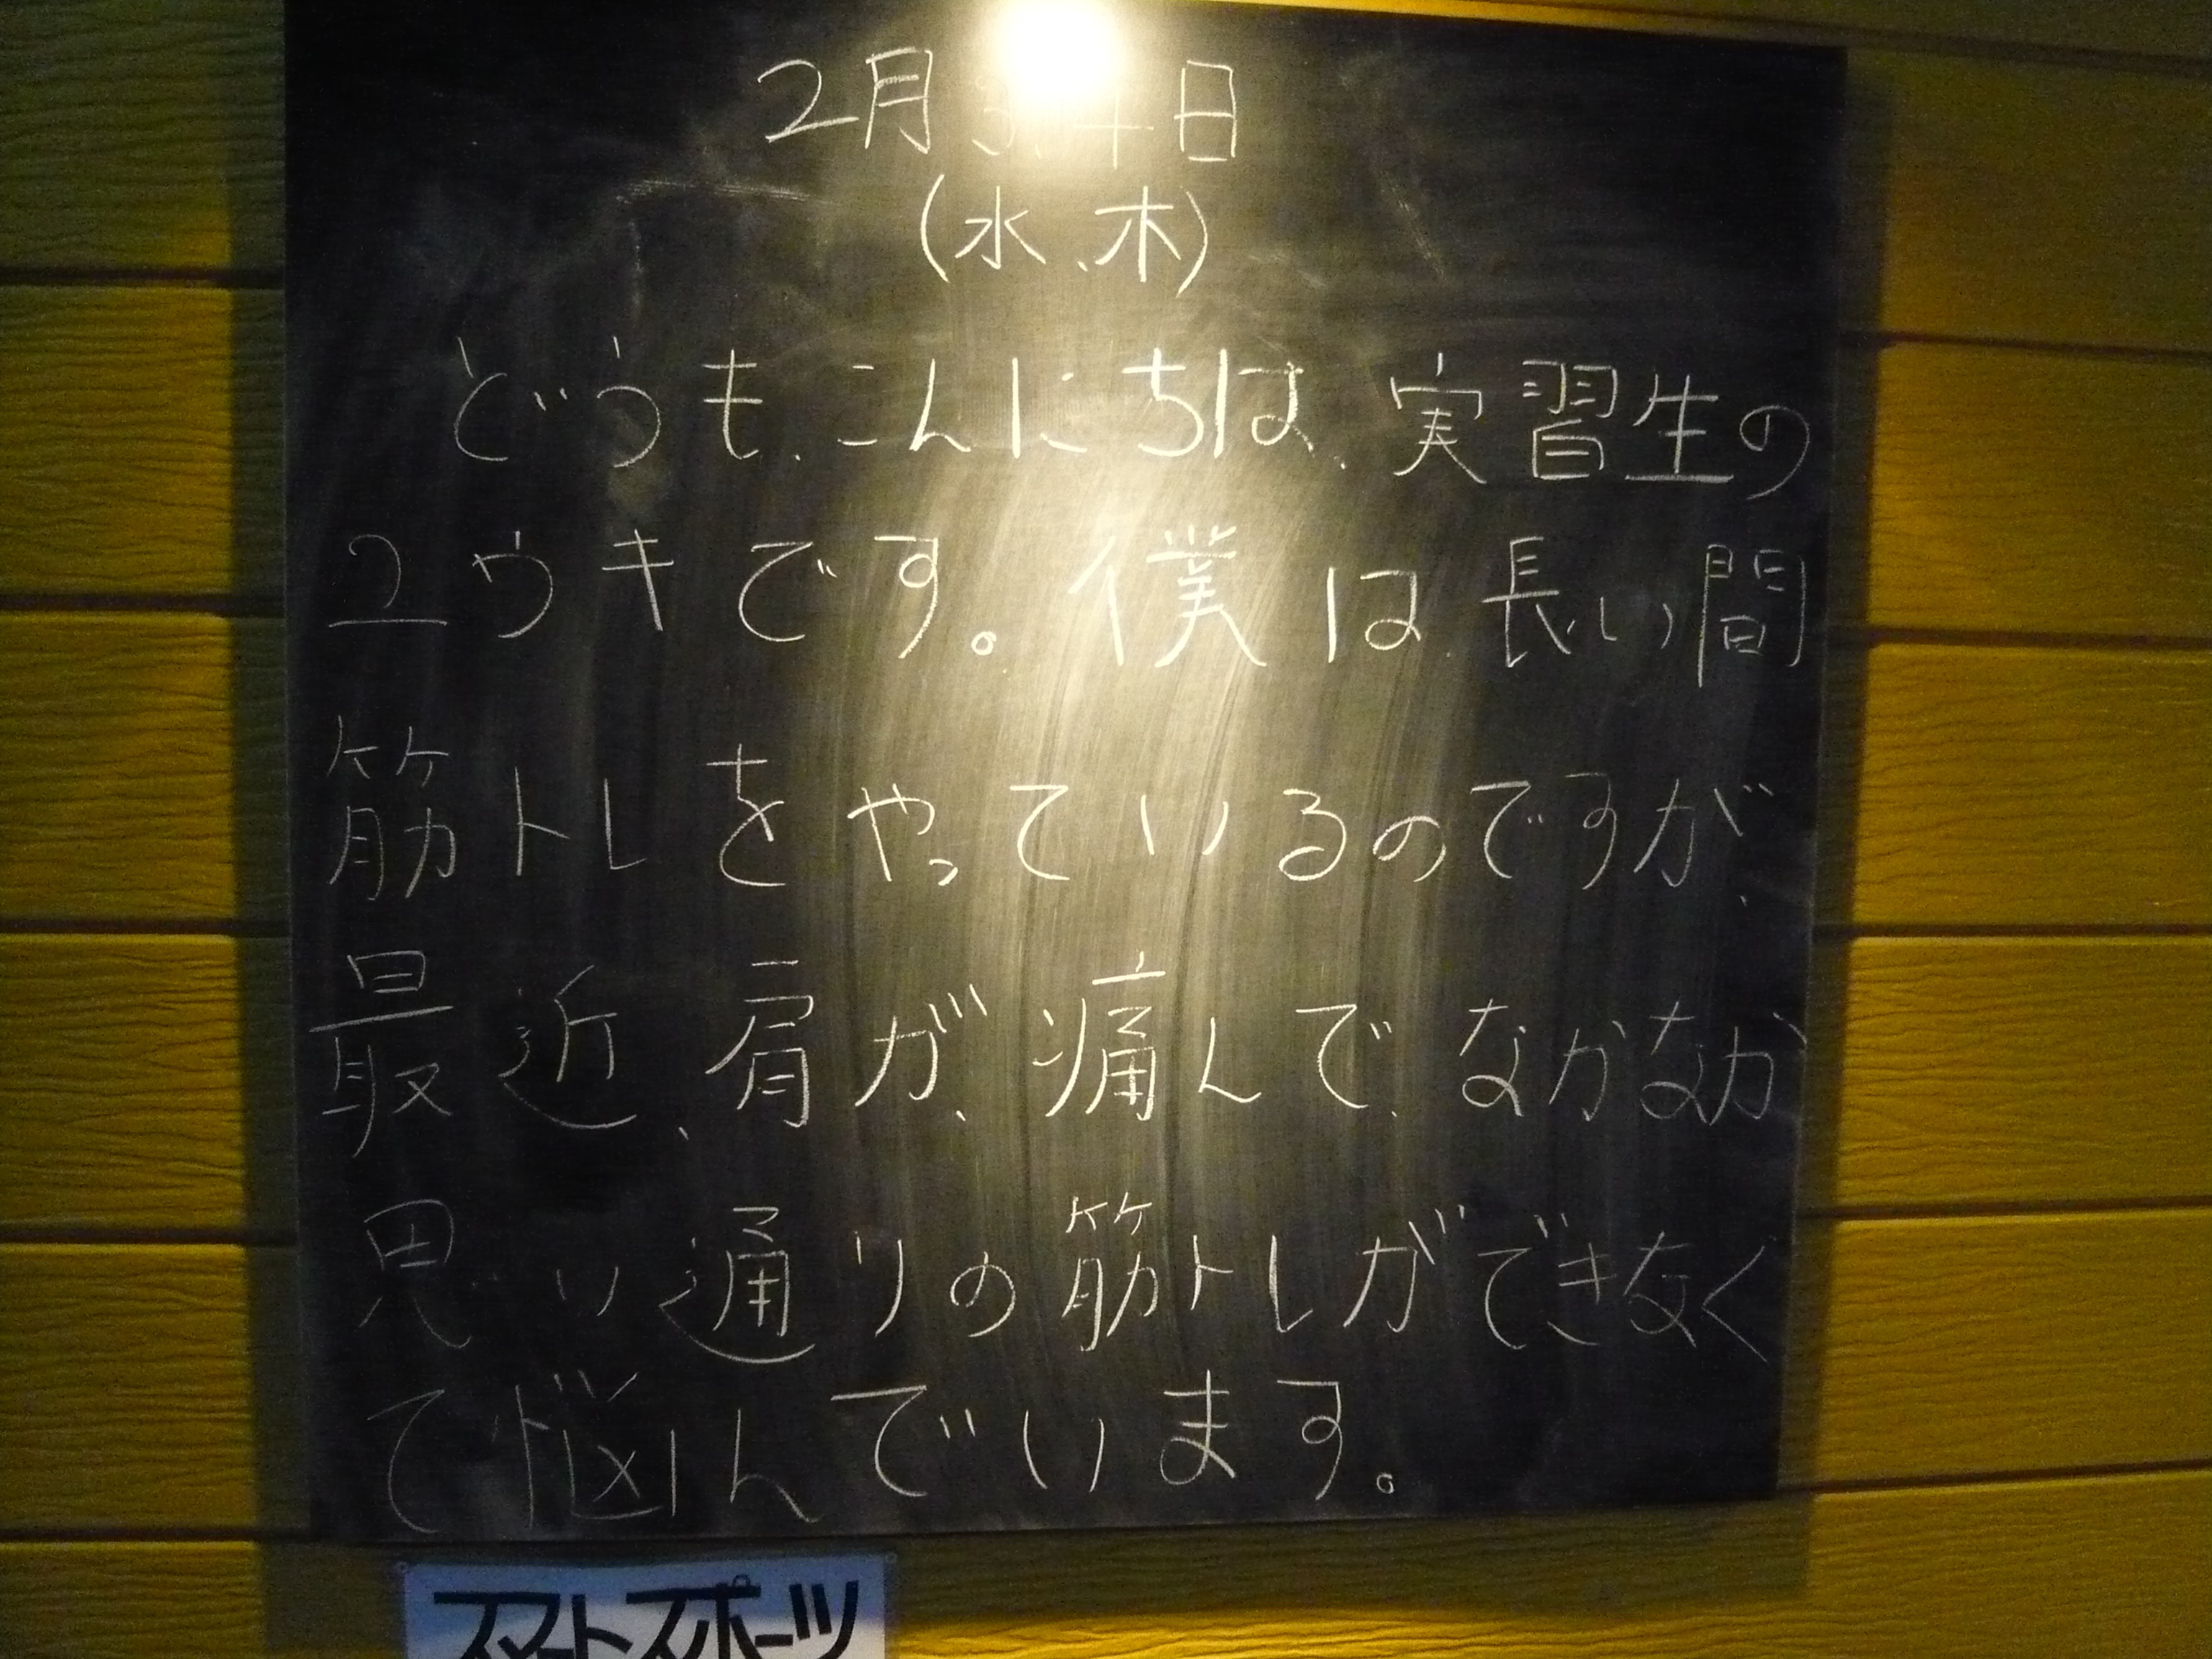 2月3.4日
(水、木)
どうも、こんにちは、実習生の
ユウキです。僕は、長い間
筋トレをやっているのですが、
最近、肩が、痛んで、なかなか
思い通りの筋トレができなく
て悩んでいます。
スマートスポーツ